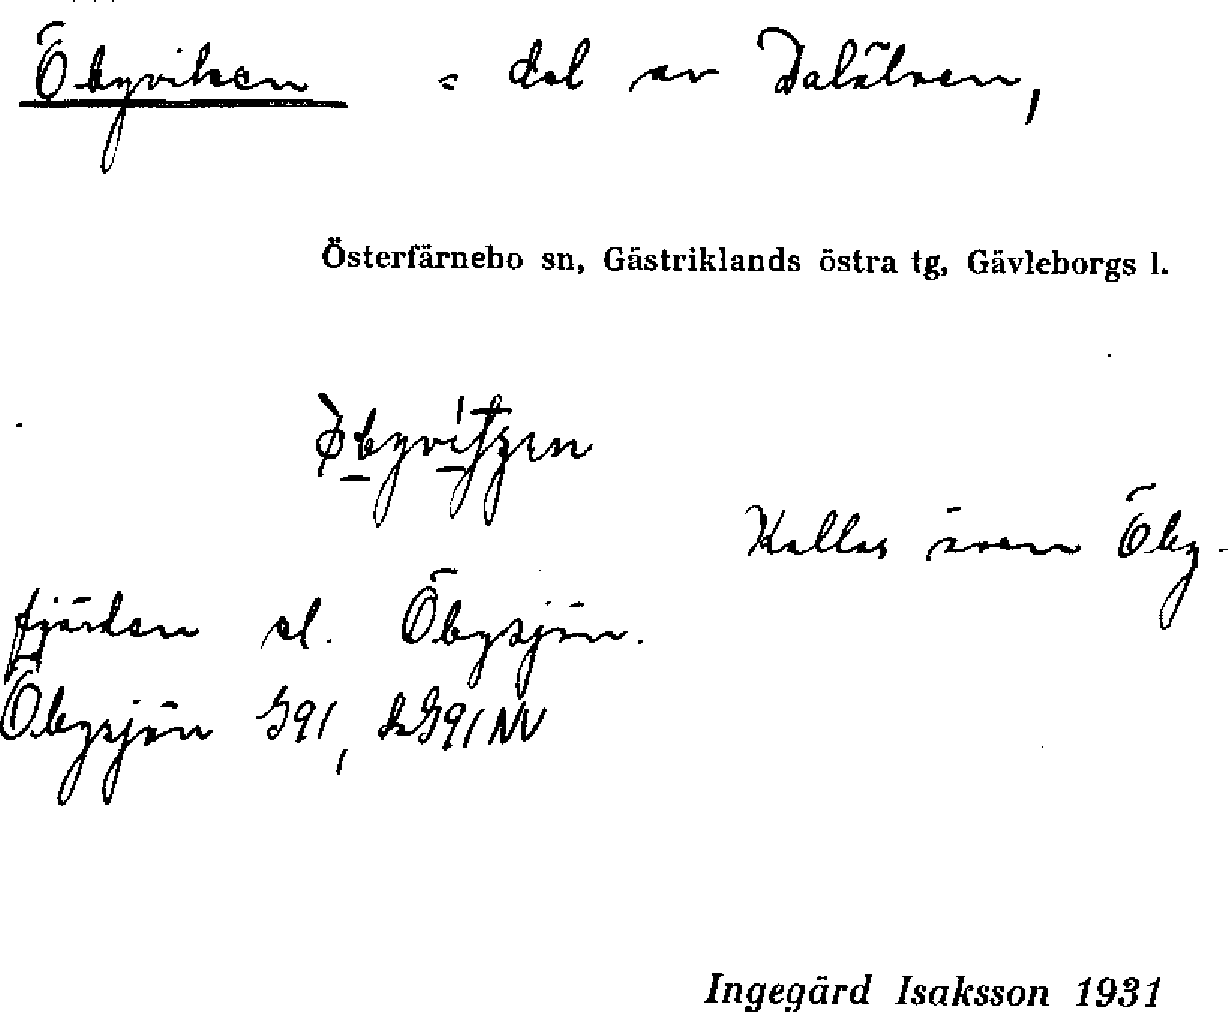 Öbyviken = del av Dalälven,
Österfärnebo sn, Gästriklands östra tg, Gävleborgs l.
Kallas även Öby-
fjärden el. Öbysjön.
Öbysjön G91, LG91NV
Ingegärd Isaksson 1931